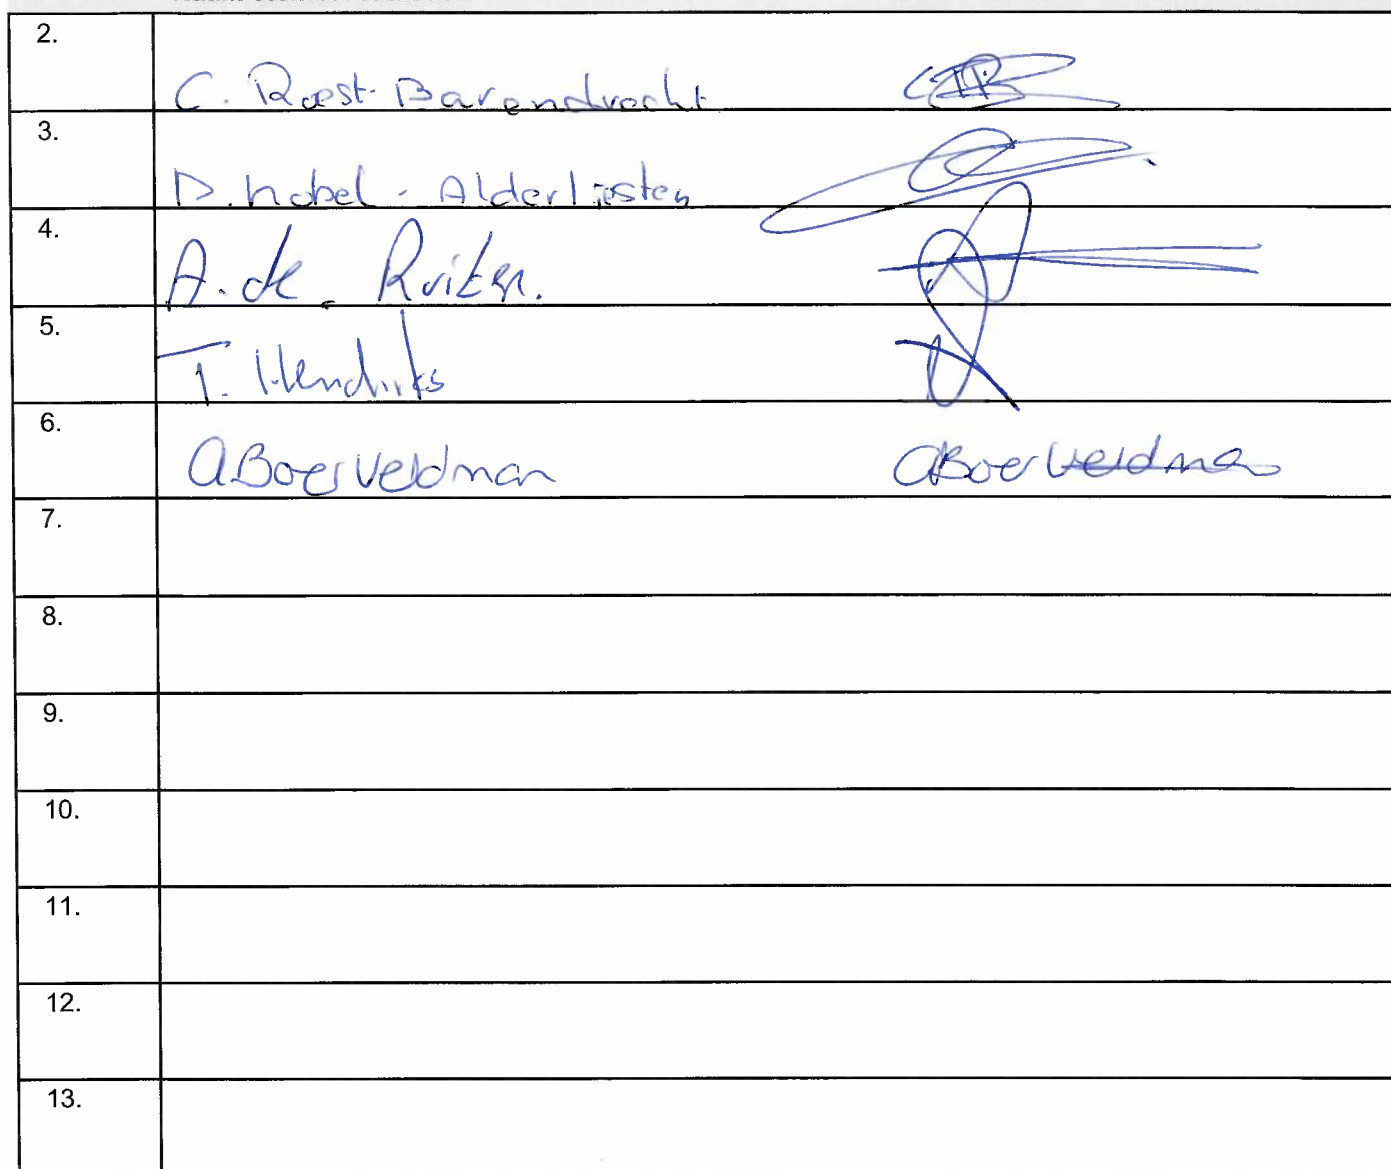 2.
C. Roest-Barendrecht
3.
D. Nobel - Alderliesten
4.
A. de Ruiter.
5.
T. Hendriks
6.
A Boer Veldman A Boer Veldman
7.
8.
9.
10.
11.
12.
13.